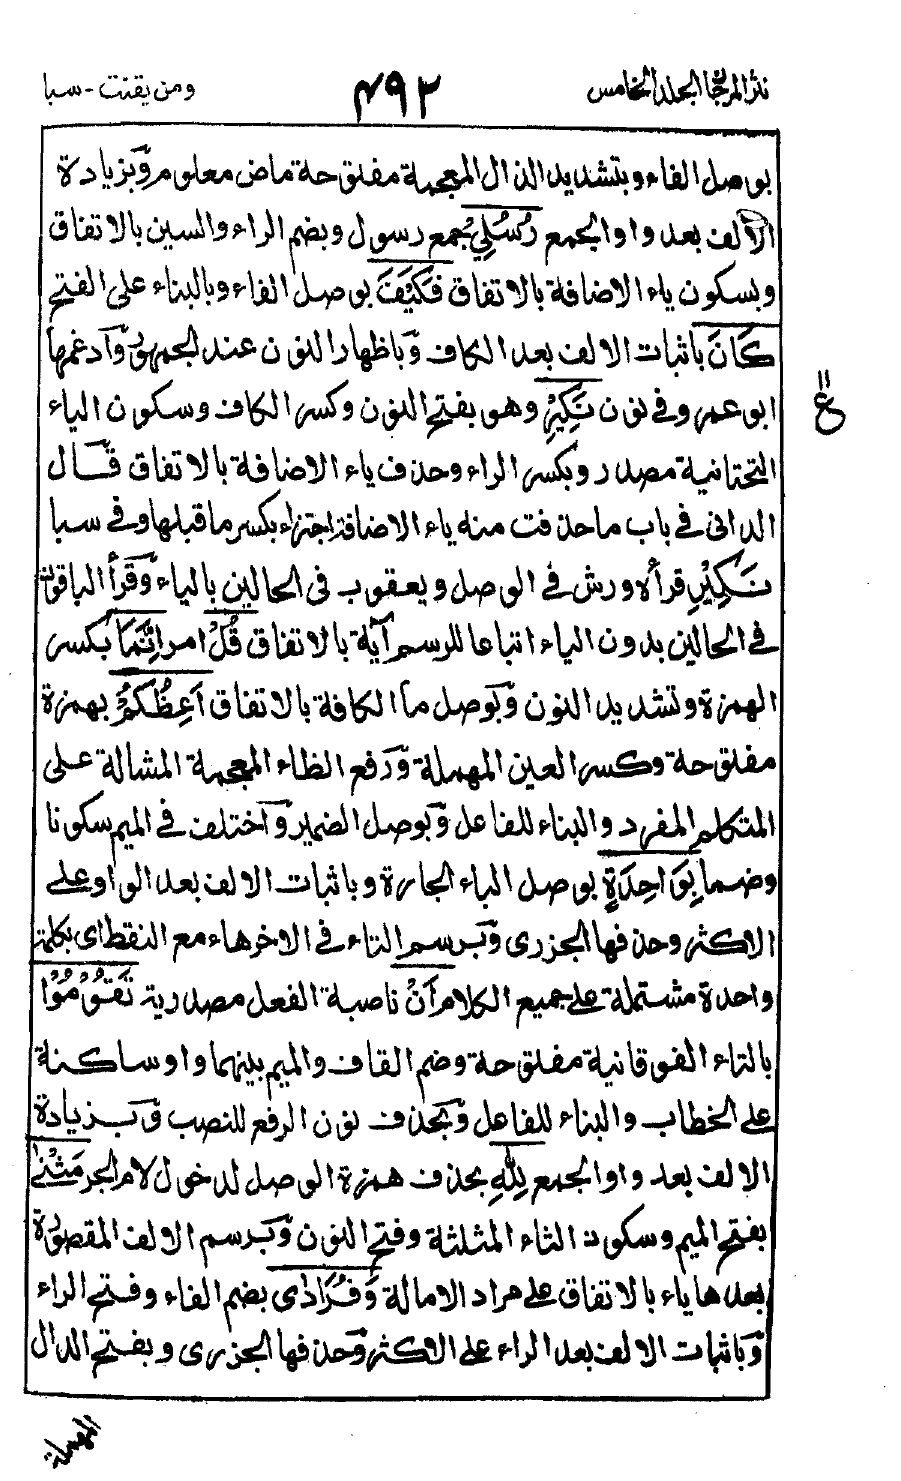 نثر المرجان المجلد الخامس
٤٩٢
ومن يقنت - سبا
بوصل الفاء وبتشديد الذال المعجمة مفتوحة ماض معلوم وبزيادة
الالف بعد واو الجمع رُسُلِي جمع رسول وبضم الراء والسين بالاتفاق
وبسكون ياء الاضافة بالاتفاق فَكَيْفَ بوصل الفاء وبالبناء على الفتح
كَانَ باثبات الالف بعد الكاف وباظهار النون عند الجمهور وآدغمها
ابو عمرو في نون نَكِيْرِ وهو بفتح النون وكسر الكاف وسكون الياء
التحتانية مصدر وبكسر الراء وحذف ياء الاضافة بالاتفاق قال
الداني في باب ما حذفت منه ياء الاضافة اجتزاء بكسر ما قبلها وفي سبا
نَكِيْرِ قرأه ورش في الوصل ويعقوب في الحالين بالياء وقرأ الباقون
في الحالين بدون الياء اتباعا للرسم آية بالاتفاق قُلْ امر اِنَّمَا بكسر
الهمزة وتشديد النون وبوصل ما الكافة بالاتفاق اَعِظُكُمْ بهمزة
مفتوحة وكسر العين المهملة ورفع الظاء المعجمة المشالة على
المتكلم المفرد والبناء للفاعل وبوصل الضمير وآختلف في الميم سكونا
وضما بِوَاحِدَةٍ بوصل الباء الجارة وباثبات الالف بعد الواو على
الاكثر وحذفها الجزري وبرسم التاء في الاخر هاء مع النقط اى بكلمة
واحدة مشتملة على جميع الكلام اَنْ ناصبة الفعل مصدرية تَقُوْمُوْا
بالتاء الفوقانية مفتوحة وضم القاف والميم بينهما واو ساكنة
على الخطاب والبناء للفاعل وبحذف نون الرفع للنصب وبزيادة
الالف بعد واو الجمع لِلّٰهِ بحذف همزة الوصل لدخول لام الجر مَثْنٰى
بفتح الميم وسكون الثاء المثلثة وفتح النون وبرسم الالف المقصورة
بعدها ياء بالاتفاق على مراد الامالة وَفُرَادٰى بضم الفاء وفتح الراء
وباثبات الالف بعد الراء على الاكثر وحذفها الجزري وبفتح الدال
المهملة